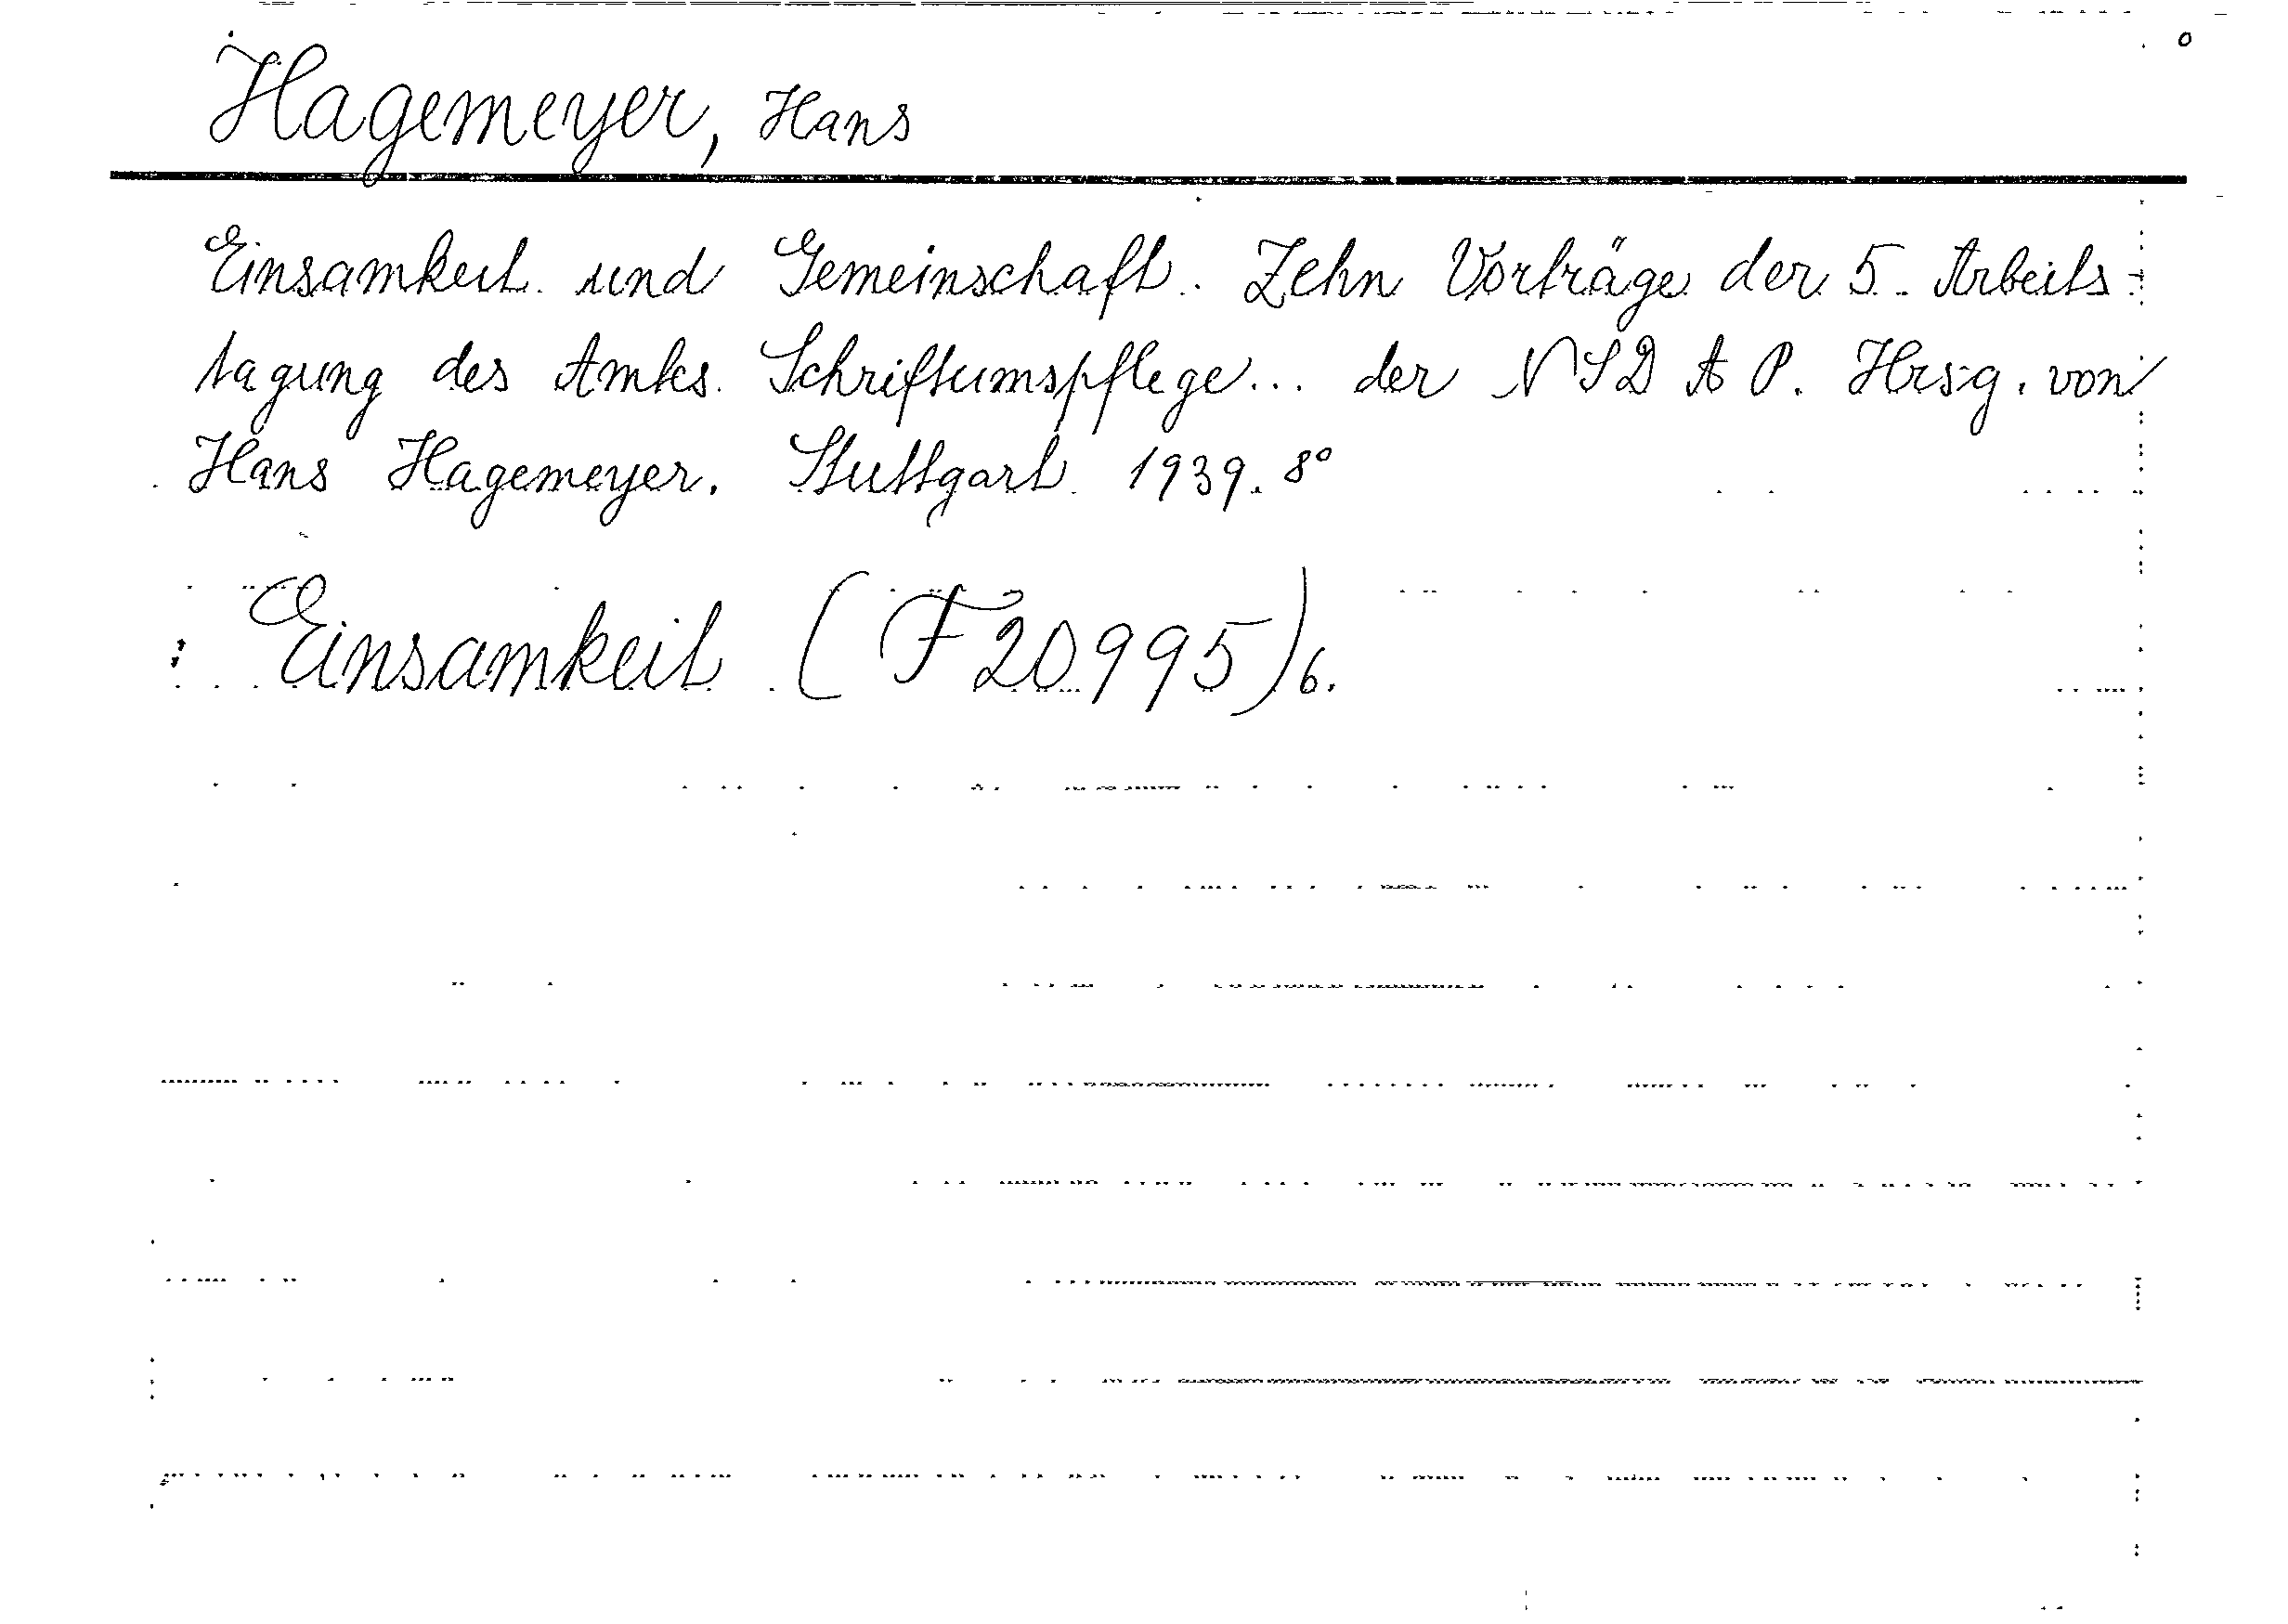 Hagemeyer, Hans
Einsamkeit und Gemeinschaft. Zehn Vorträge der 5. Arbeits-
tagung des Amtes Schriftumspflege... der NSDAP. Hrsg. von
Hans Hagemeyer. Stuttgart 1939. 8°
Einsamkeit (F 20995) 6.